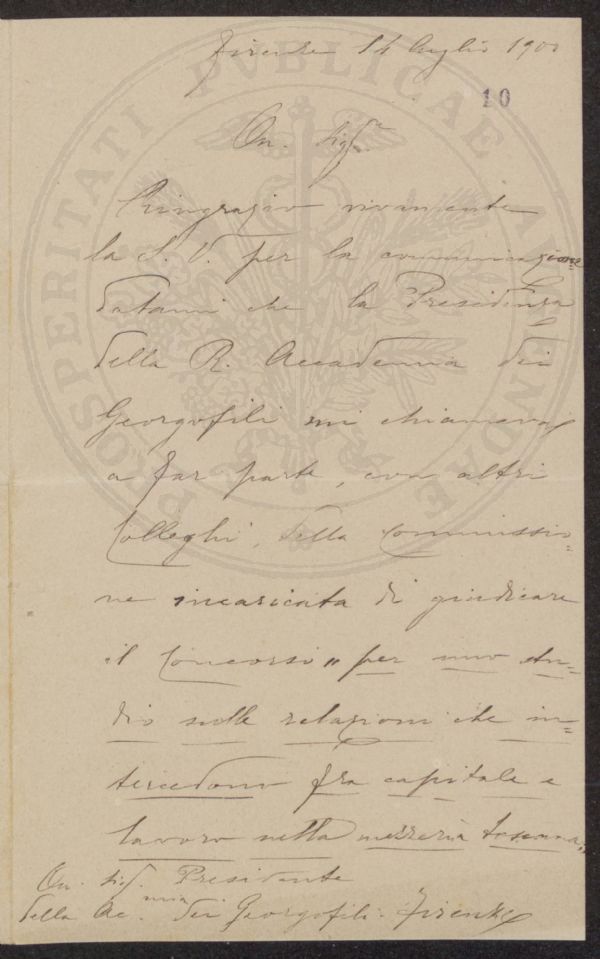 Firenze 14 luglio 1900
10
On. Sigr.
Ringrazio vivamente
la S. V. per la comunicazione
datami che la Presidenza
della R. Accademia dei
Georgofili mi chiamava
a far parte, con altri
Colleghi, della Commissio=
ne incaricata di giudicare
il Concorso „per uno stu=
dio sulle relazioni che in=
tercedono fra capitale e
lavoro nella mezzeria toscana„
On. Sig. Presidente
della Ac.mia dei Georgofili - Firenze
PROSPERITATI PVBLICAE AVGENDAE